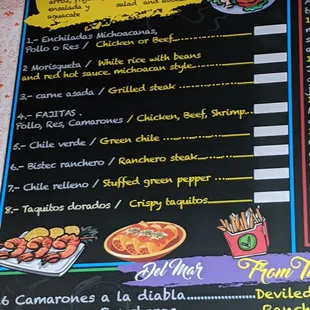 arroz, frijoles
ensalada y salad and avocado
aguacate
1.- Enchiladas Michoacanas,
Pollo o Res / Chicken or Beef
2 Morisqueta / White rice with beans
and red hot sauce, michoacan style
3.- carne asada / Grilled steak
4.- FAJITAS .
Pollo, Res, Camarones / Chicken, Beef, Shrimp
5.- Chile verde / Green chile
6.- Bistec ranchero / Ranchero steak
7.- Chile relleno / Stuffed green pepper
8.- Taquitos dorados / Crispy taquitos
Del Mar From
16 Camarones a la diabla Deviled
Ranch